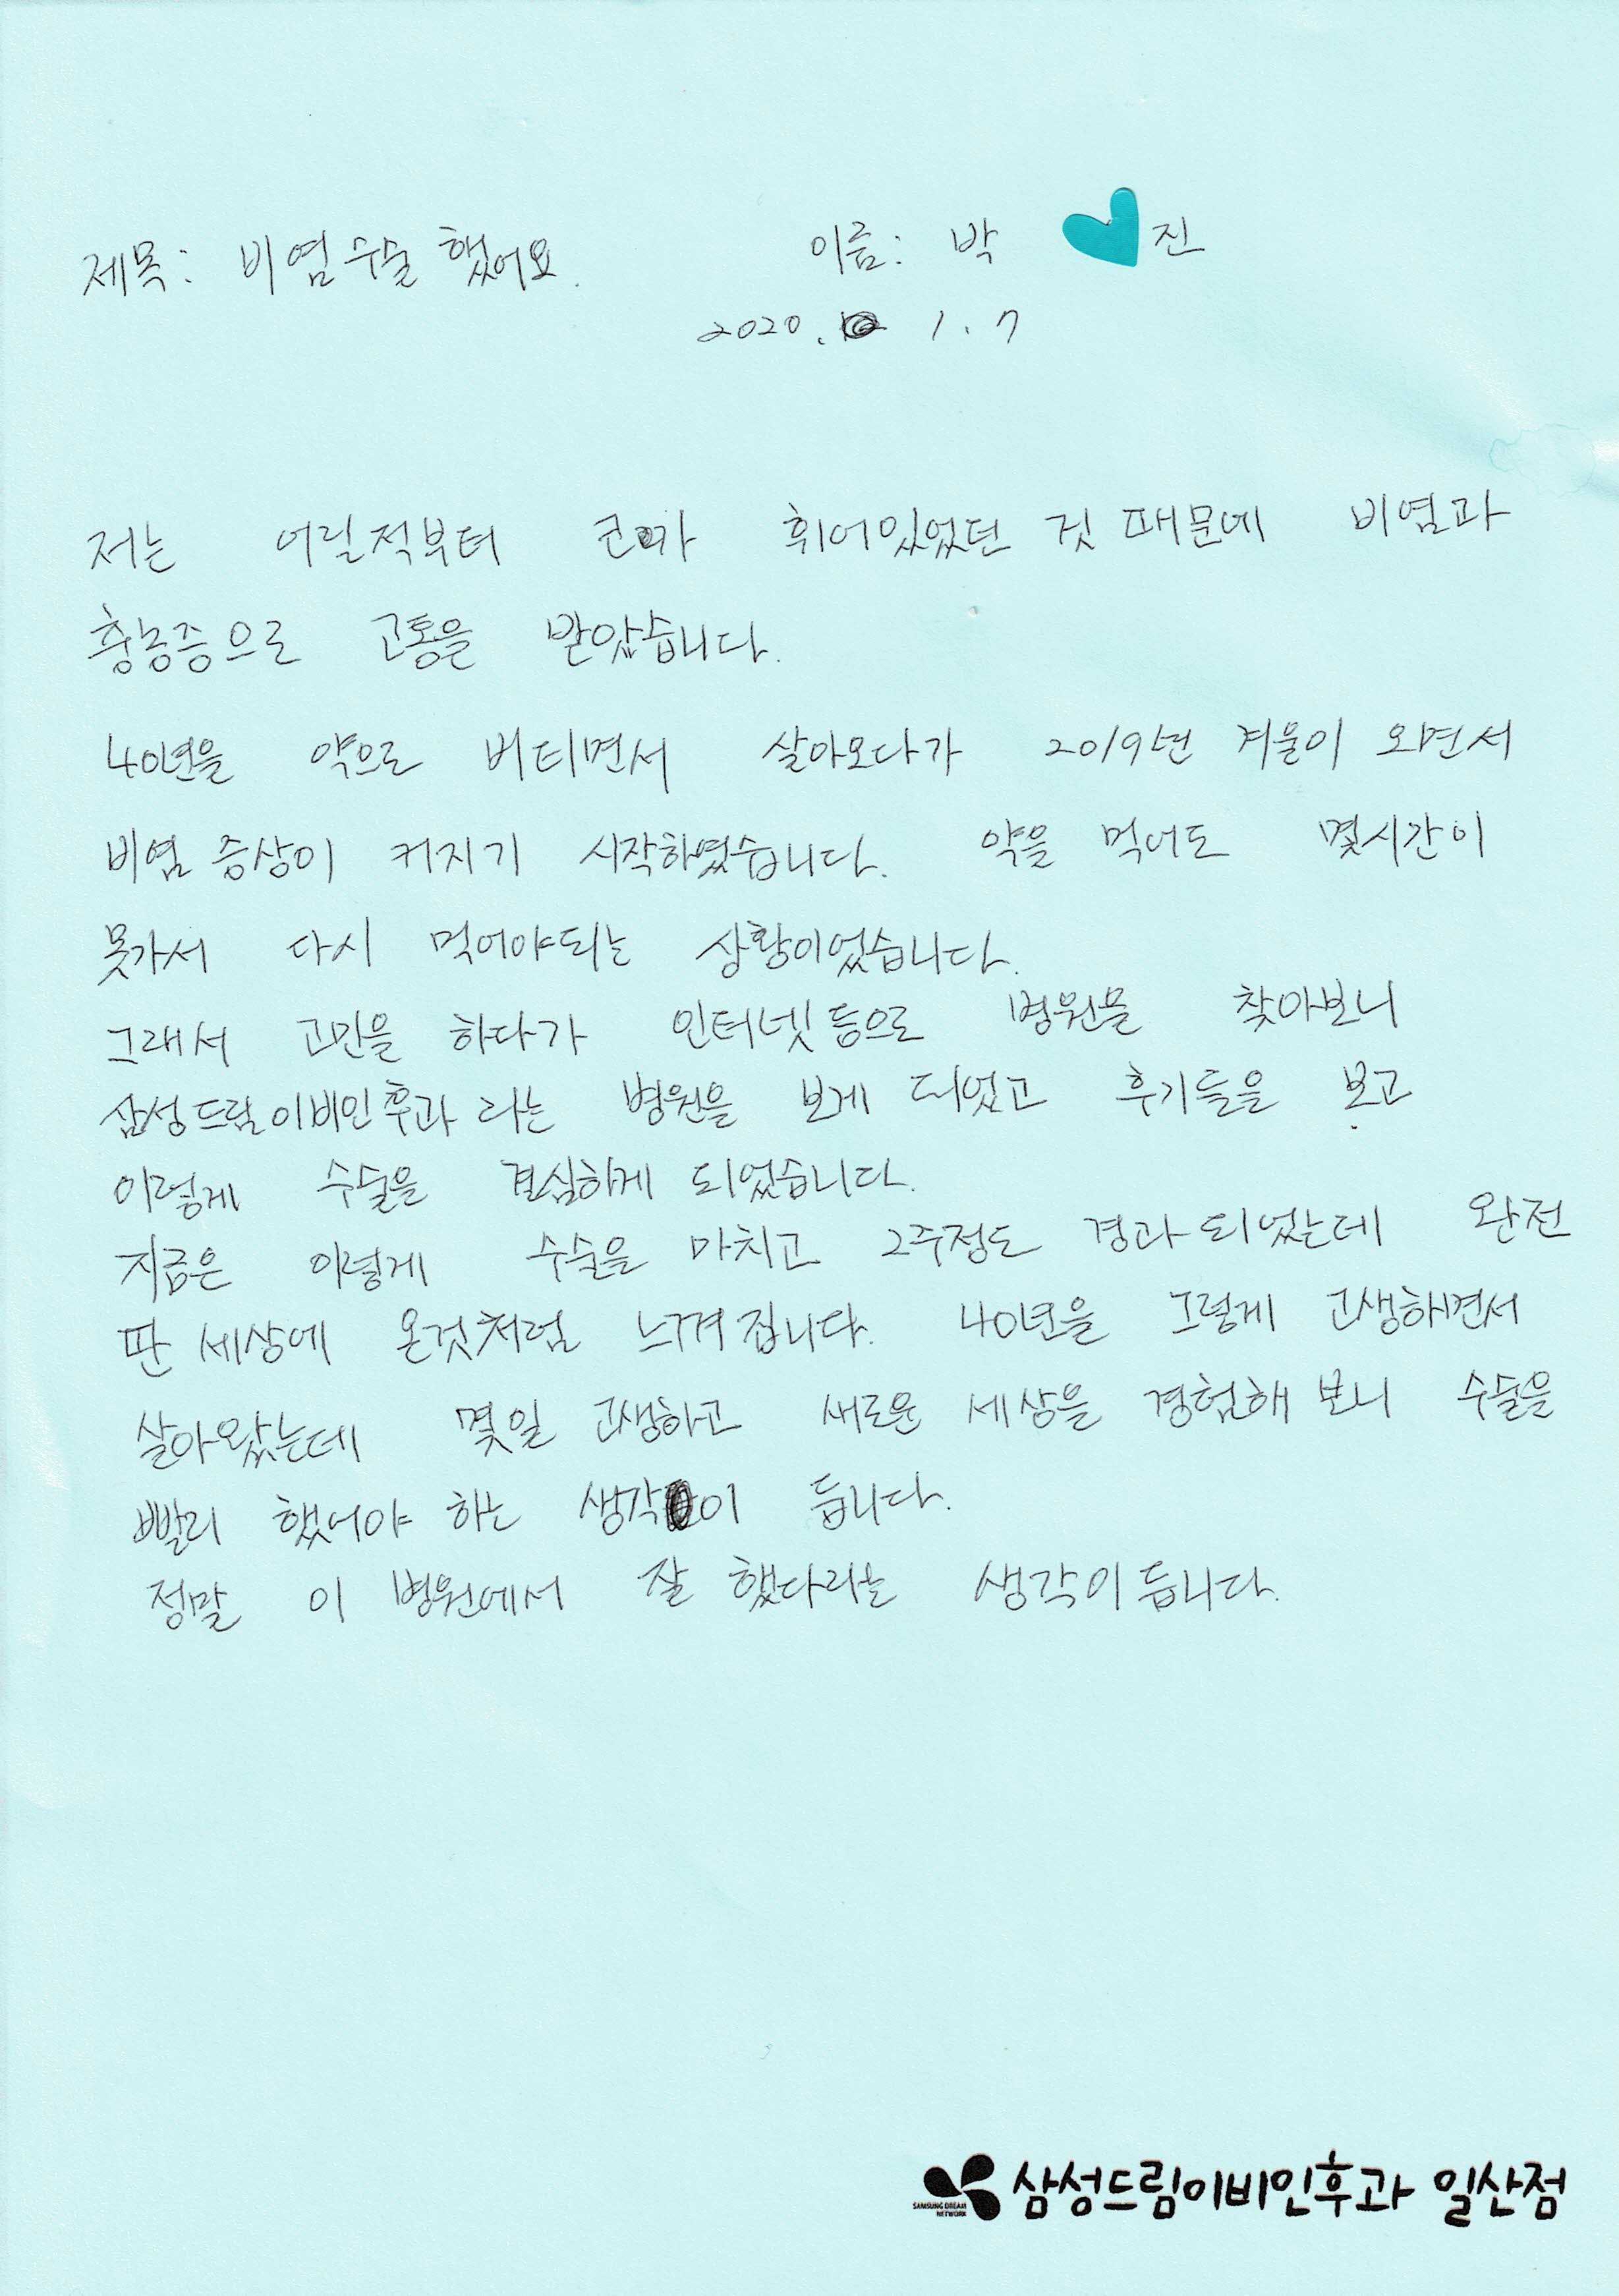 제목: 비염수술 했어요.
이름: 박 진
2020. 1. 7
저는 어릴적부터 코가 휘어있었던 것 때문에 비염과
축농증으로 고통을 받았습니다.
40년을 약으로 버티면서 살아오다가 2019년 겨울이 오면서
비염 증상이 커지기 시작하였습니다. 약을 먹어도 몇시간이
못가서 다시 먹어야되는 상황이었습니다.
그래서 고민을 하다가 인터넷 등으로 병원을 찾아보니
삼성드림이비인후과 라는 병원을 보게 되었고 후기들을 보고
이렇게 수술을 결심하게 되었습니다.
지금은 이렇게 수술을 마치고 2주정도 경과되었는데 완전
딴 세상에 온것처럼 느껴집니다. 40년을 그렇게 고생하면서
살아왔는데 몇일 고생하고 새로운 세상을 경험해 보니 수술을
빨리 했어야 하는 생각이 듭니다.
정말 이 병원에서 잘 했다라는 생각이 듭니다.
SAMSUNG DREAM NETWORK
삼성드림이비인후과 일산점